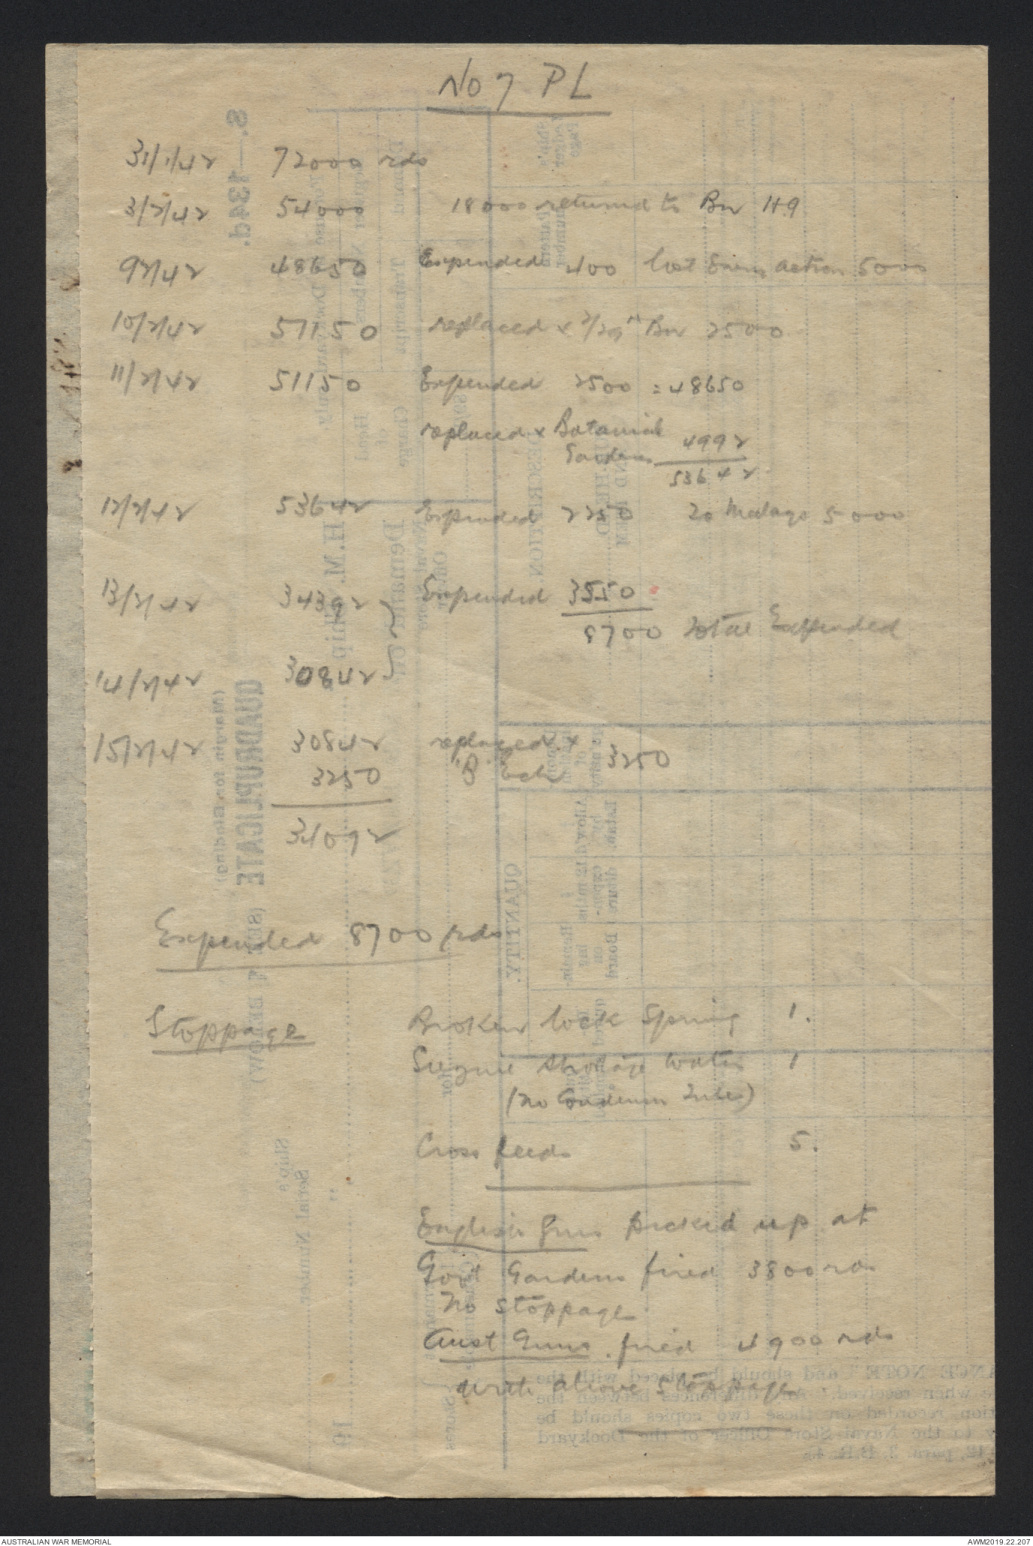 No 7 PL
31/1/42 72000 rds
3/2/42 54000 18000 returned to Bn HQ
9/2/42 48650 Expended 400 lost Enemy action 5000
10/2/42 51150 replaced x 2/29th Bn 2500
11/2/42 51150 Expended 2500 = 48650
replaced x Botanical
Gardens 4992
53642
12/2/42 53642 Expended 2250 To Malays 5000
13/2/42 34392 Expended 3550
8700 Total Expended
14/2/42 30842
15/2/42 30842 replaced x
3250 "B" Ech 3250
34092
Expended 8700 rds
Stoppage Broken lock Spring 1.
Seizure shortage water 1
(no Condenser Tubes)
Cross feeds 5.
English Guns picked up at
Govt Gardens fired 3800 rds
No stoppage.
Aust Guns. fired 4900 rds
with above stoppage
AUSTRALIAN WAR MEMORIAL
AWM2019.22.207